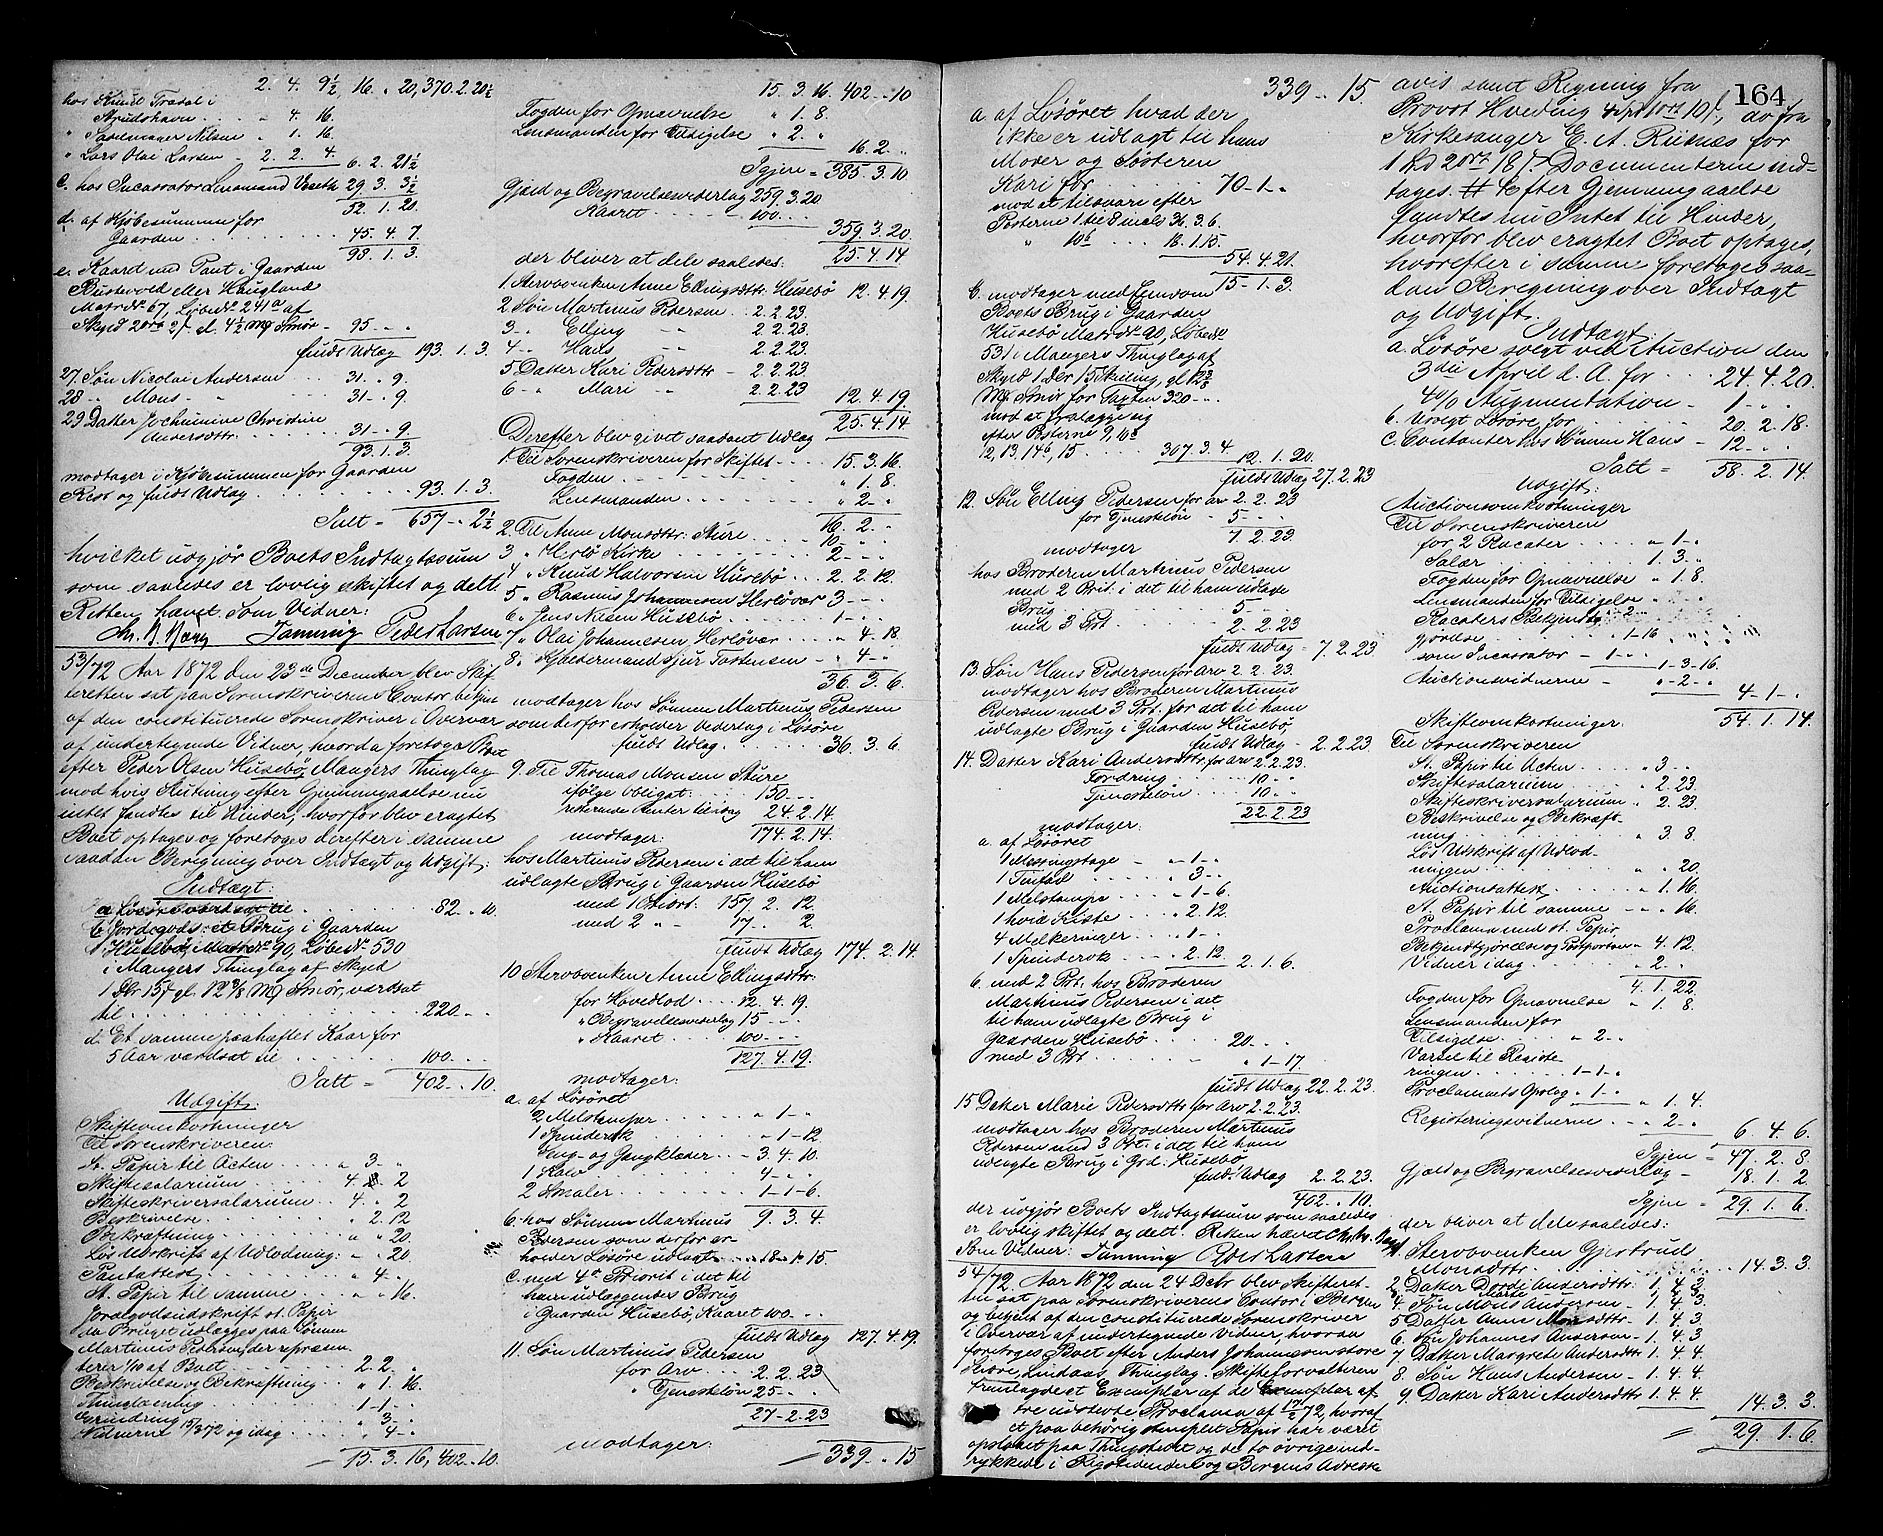 2. 4. 9½, 16. „ 20, 370. 2. 20½
hos Knud Trædal i
. . . . „ 4. 16.
„ Nilsen „ 1. 16.
„ Lars Olai Larsen - 2. 2. 4. 6. 2. 21½
c. hos Incassator Lensmand 29. 3. 3½
52. 1. 20.
d. af Kjøbesummen for
Gaarden . . . . . 45. 4. 7.
98. 1. 3.
e. Kaaret med Pant i Gaarden
eller Haugland
Matr№ 67, Løbe№ 241a af
Skyld 2 ort 2 ß. el. 4½ Smør - 95 - „ „
fuldt Udlæg 193. 1. 3.
27. Søn Nicolai Andersen . . 31. „ 9.
28 „ Mons - „ . . . 31 - „ 9.
29 Datter Jochumine Christine
Andersdttr. . . . . 31 - „ 9
93. 1. 3.
modtager i Kjøbesummen for Gaarden
Rest og fuldt Udlæg . . . . 93. 1. 3.
Ialt = 657 - „ 2½
hvilket udgjør Boets Indtægtssum
som saaledes er lovlig skiftet og delt.
Retten hævet. Som Vidner:
Tanning Peder Larsen
53/72 Aar 1872 den 23de December blev Skif-
teretten sat paa Sorenskriverens Contor betjent
af den constituerede Sorenskriver i Overvær
af undertegnede Vidner, hvorda foretoges Boet
efter Peder Olsen Husebø, Mangers Thinglag
mod hvis Slutning efter Gjennemgaaelse nu
intet fandtes til Hinder, hvorfor blev eragtet
Boet optages og foretoges derefter i samme
saadan Beregning over Indtægt og Udgift:
Indtægt:
a Løsøre værdsat til . . . . 82. „ 10.
b Jordegods: et Brug i Gaarden
Husebø, Matr№ 90, Løbe№ 530
i Mangers Thinglag af Skyld
1 Dlr 15 ß gl. 12⅜ Smør, værdsat
til . . . . 220 - „ „
d. Et samme paahæftet Kaar for
5 Aar værdsat til . . . . 100 - „ „
Ialt = 402 - „ 10.
Udgift:
Skifteomkostninger
Til Sorenskriveren:
St. Papir til Acten . . . . „ 3 - „
Skiftesalarium . . . . 4. „ 2
Skifteskriversalarium . . 4. „ 2
Beskrivelse . . . . „ 2. 12
Bekræftning . . . . „ „ 20.
Løs Udskrift af Udlodning: „ - 20
Pantattest . . . . „ 4 - „
St. Papir til samme . . . „ „ 16.
Jordegodsudskrift st. Papir
da Bruget udlægges paa Sønnen
Martinus Pedersen, der repræsen-
terer 1/10 af Boet . . . . 2. 2. „
Beskrivelse og Bekræftning . . „ 1. 16.
Thinglæsning . . . . 1 - 1 - „
Grundring . . . . „ 3 - „
Vidnerne 15/3 72 og idag . . . „ 4 - „
15. 3. 16, 402 - „ 10.
15. 3. 16 402 - „ 10
Fogden for Opnævnelse „ 1. 8.
Lensmanden for Tilsigelse „ 2. „
16. 2. „
Igjen = 385. 3. 10.
Gjæld og Begravelsesvederlag 259. 3. 20
Kaaret . . . . 100 - „ „
359. 3. 20.
der bliver at dele saaledes: 25. 4. 14
1. Stervboenken Anne Ellingsdttr. Husebø 12. 4. 19
2 Søn Martinus Pedersen . . 2. 2. 23.
3 „ „ Elling „ 2. 2. 23.
4 „ „ Hans „ 2. 2. 23.
5 Datter Kari Pedersdttr. - 2. 2. 23.
6 „ „ Mari „ 2. 2. 23
12. 4. 19.
25. 4. 14
Derefter blev givet saadant Udlæg
1. Til Sorenskriveren for Skiftet . . . . 15. 3. 16.
Fogden . . . . „ 1. 8
Lensmanden . . . . „ 2 - „
16. 2 - „
2. Til Anne Monsdttr. Sture . . . 10 - „ „
3 „ Herlø Kirke . . . . 2 - „ „
4 „ Knud Halvorsen Husebø . . . 2. 2. 12.
5 „ Rasmus Johannesen Herløvær 3 - „ „
6 „ Jens Nilsen Husebø . . . . 1 - „ „
7 „ Olai Johannesen Herløvær . . . „ 4. 18.
8 „ Kjøldermand Sjur Tostensen . . - „ 4 - „
36. 3. 6.
modtager hos Sønnen Martinus Pedersen
som derfor erholder Vederlag i Løsøre
fuldt Udlæg . . . . 36. 3. 6.
9. Til Thomas Monsen Sture
ifølge Obligat: . . . . 150 - „ „
resterende Renter til idag 24. 2. 14.
modtager: 174. 2. 14.
hos Martinus Pedersen i det til ham
udlagte Brug i Gaarden Husebø
med 1 Priort: 157. 2. 12
med 2 „ - 17 - „ 2
fuldt Udlæg 174. 2. 14.
10. Stervboenken Anne Ellingsdttr.
for Hovedlod . . . 12. 4. 19.
„ Begravelsesvederlag 15 - „ „
„ Kaaret . . . 100 - „ „
127. 4. 19.
modtager:
a. af Løsøret
2 Melstamper . . . . „ 1 - „
1 Spinderok . . . . „ 1 - 12
Seng- og Gangklæder . . 3. 4. 10.
1 Kalv . . . . 4 - „ „
2 Smaler . . . . 1 - 1 - 6.
9. 3. 4.
b. hos Sønnen Martinus
Pedersen som derfor er-
holder Løsøre udlagt . . 18 - „ 15.
c. med 4de Priorit i det til
ham udlæggendes Brug
i Gaarden Husebø, Kaaret 100 - „ „
fuldt Udlæg 127. 4. 19.
11. Søn Martinus Pedersen
for Arv . . . . 2. 2. 23
„ Tjenesteløn 25 - „ „
27 - 2. 23
modtager: 339 - „ 15
164
339 „ 15.
a. af Løsøret hvad der
ikke er udlagt til hans
Moder og Søsteren
Kari for . . . . 70 - 1 - „
mod at tilsvare efter
Posterne 1 til 8 incls 36. 3. 6.
„ 10b . . . 18. 1. 15.
54. 4. 21.
15 - 1. 3.
b. modtager med Eiendom
Boets Brug i Gaarden
Husebø Matr№ 90, Løbe№
531 i Mangers Thinglag af
Skyld 1 Dlr 15 Skilling, gl 12⅜
Smør for Taxten 320 - „ „
mod at forelægge sig
efter Posterne 9, 10c
12, 13. 14b, 15 . . . . 307. 3. 4
12. 1. 20.
fuldt Udlæg 27. 2. 23
12. Søn Elling Pedersen for Arv 2. 2. 23
for Tjenesteløn 5 - „ „
7. 2. 23
modtager
hos Broderen Martinus Pedersen
med 2 Prt: i det til ham udlagte
Brug . . . . 5 - „ „
med 3 Prt. . . 2. 2. 23
fuldt Udlæg = 7. 2. 23
13. Søn Hans Pedersen for Arv 2. 2. 23.
modtager hos Broderen Martinus
Pedersen med 3 Prt: for det til ham
udlagte Brug i Gaarden Husebø,
fuldt Udlæg - 2. 2. 23.
14. Datter Kari Andersdttr. for Arv 2. 2. 23.
Fordring . . . 10 - „ „
Tjenesteløn . . . 10 - „ „
22. 2. 23
modtager:
a. af Løsøret
1 Messingstage - „ 1 - „
1 Tinfad . . . „ 3 - „
1 Melstampe . . - „ 1 - 6.
1 hvid Kiste . . „ 2. 12.
4 Melkeringer . . „ 1 - „
1 Spinderok . . . „ 2. 12. 2. 1. 6.
b. med 2 Prt: hos Broderen
Martinus Pedersen i det
til ham udlagte Brug i
Gaarden Husebø . . 20. „ „
med 3 Prt. . . . „ 1 - 17
fuldt Udlæg 22. 2. 23.
15 Datter Marie Pedersdttr. for Arv 2. 2. 23.
modtager hos Broderen Martinus
Pedersen med 3 Prt: i det til ham
udlagte Brug i Grd: Husebø
fuld: Udlæg 2. 2. 23.
402 - „ 10.
der udgjør Boets Indtægtssum som saaledes
er lovlig skiftet og delt. Retten hævet
Som Vidner: Tanning Peder Larsen
54/72. Aar 1872 den 24 Decbr blev Skifteret-
ten sat paa Sorenskriverens Contor i Bergen
og betjent af den constituerede Sorenskriver
i Overvær af undertegnede Vidner, hvorda
foretoges Boet efter Anders Johannesen store
Lindaas Thinglag. Skifteforvalteren
fremlagde et Exemplar af de Exemplar af-
tre udstedte Proclama af 17/2 72, hvoraf
et paa behørig stemplet Papir har været
opslaaet paa Thingstedet og de to øvrige ind-
rykkede i Rigstidende og Bergens Adresse-
avis samt Regning fra
Provst Hvoding 4 Spd 1 ort 10 ß, do fra
Kirkesanger E. A. Riiknæs for
1 Spd 2 ort 18 ß. Documenterne ind-
tages. # Efter Gjennemgaaelse
fandtes nu Intet til Hinder,
hvorfor blev eragtet Boet optages,
hvorefter i samme foretoges saa-
dan Beregning over Indtægt
og Udgift.
Indtægt:
a. Løsøre solgt ved Auction den
3die April d. A. for . . . 24. 4. 20.
4 o/o Augmentation - 1 - „ „
b. Usolgt Løsøre for . . . 20. 2. 18.
c. Contanter hos Sønnen Hans - 12 - „ „
Ialt = 58. 2. 14.
Udgift:
Auctionsomkostninger
Til Sorenskriveren
for 2 Placater . . . . „ 1 - „
Salær . . . . 1. 3 - „
Fogden for Opnævnelse „ 1. 8.
Lensmanden for Tilsigelse
Placaters Bekjendt- „ 2 - „
gjørelse . . . „ 1 - 16
som Incassator - 1 - „ „ 1 - 3 - 16.
Auctionsvidnerne - „ - 2 - „
4 - 1 - „
Skifteomkostninger: 54. 1. 14.
Til Sorenskriveren
St. Papir til Acten . . „ 3 - „
Skiftesalarium . . . „ 2. 23
Skifteskriversalarium „ 2. 23
Beskrivelse og Bekræft-
ning . . . . „ 3. 8
Løs Udskrift af Udlod-
ningen . . . . „ „ 20
Auctionsattest . . „ 1. 16
St. Papir til samme - „ „ 16.
Proclama med st. Papir
Bekjendtgjørelse og Postporto „ 4. 12
Vidner idag . . . „ 2 - „
4. 1. 22
Fogden for Opnævnelse „ 1. 8.
Lensmanden for
Tilsigelse . . . „ 2 - „
Varsel til Registe-
ringen . . . 1 - 1 - „
Proclamaets Opslag „ 1 - „
„ 1. 4.
Registeringsvidnerne . . „ 2 - „
6. 4. 6.
Igjen = 47. 2. 8.
Gjæld og Begravelsesvederlag - 18. 1. 2.
Igjen = 29. 1. 6.
der bliver at dele saaledes:
1. Stervboenken Gjertrud
Monsdttr. . . . . 14. 3. 3
2 Datter Dordi Andersdttr. 1. 4. 3
3 „ Marte 1. 4. 3
4. Søn Mons Andersen - 1. 4. 3
5 Datter Anne 1. 4. 3
6. Søn Johannes Andersen - 1. 4. 3
7 Datter Margrete Andersdttr. 1. 4. 4
8 Søn Hans Andersen - 1. 4. 4
9 Datter Kari Andersdttr. 1. 4. 4
14. 3. 3.
= 29. 1. 6.